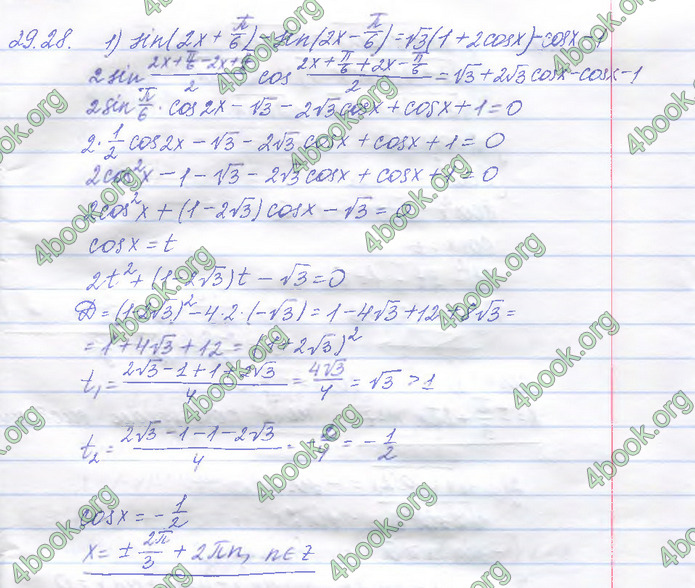 29.28. 1) sin(2x + π/6) - sin(2x - π/6) = √3(1 + 2cosx) - cosx - 1
2 sin (2x + π/6 - 2x + π/6)/2 cos (2x + π/6 + 2x - π/6)/2 = √3 + 2√3 cosx - cosx - 1
2 sin π/6 · cos2x - √3 - 2√3 cosx + cosx + 1 = 0
2 · 1/2 cos2x - √3 - 2√3 cosx + cosx + 1 = 0
2cos²x - 1 - √3 - 2√3 cosx + cosx + 1 = 0
2cos²x + (1 - 2√3) cosx - √3 = 0
cosx = t
2t² + (1 - 2√3)t - √3 = 0
D = (1 - 2√3)² - 4·2·(-√3) = 1 - 4√3 + 12 + 8√3 =
= 1 + 4√3 + 12 = (1 + 2√3)²
t₁ = (2√3 - 1 + 1 + 2√3)/4 = 4√3/4 = √3 > 1
t₂ = (2√3 - 1 - 1 - 2√3)/4 = -2/4 = -1/2
cosx = -1/2
x = ± 2π/3 + 2πn, n ∈ Z
4book.org